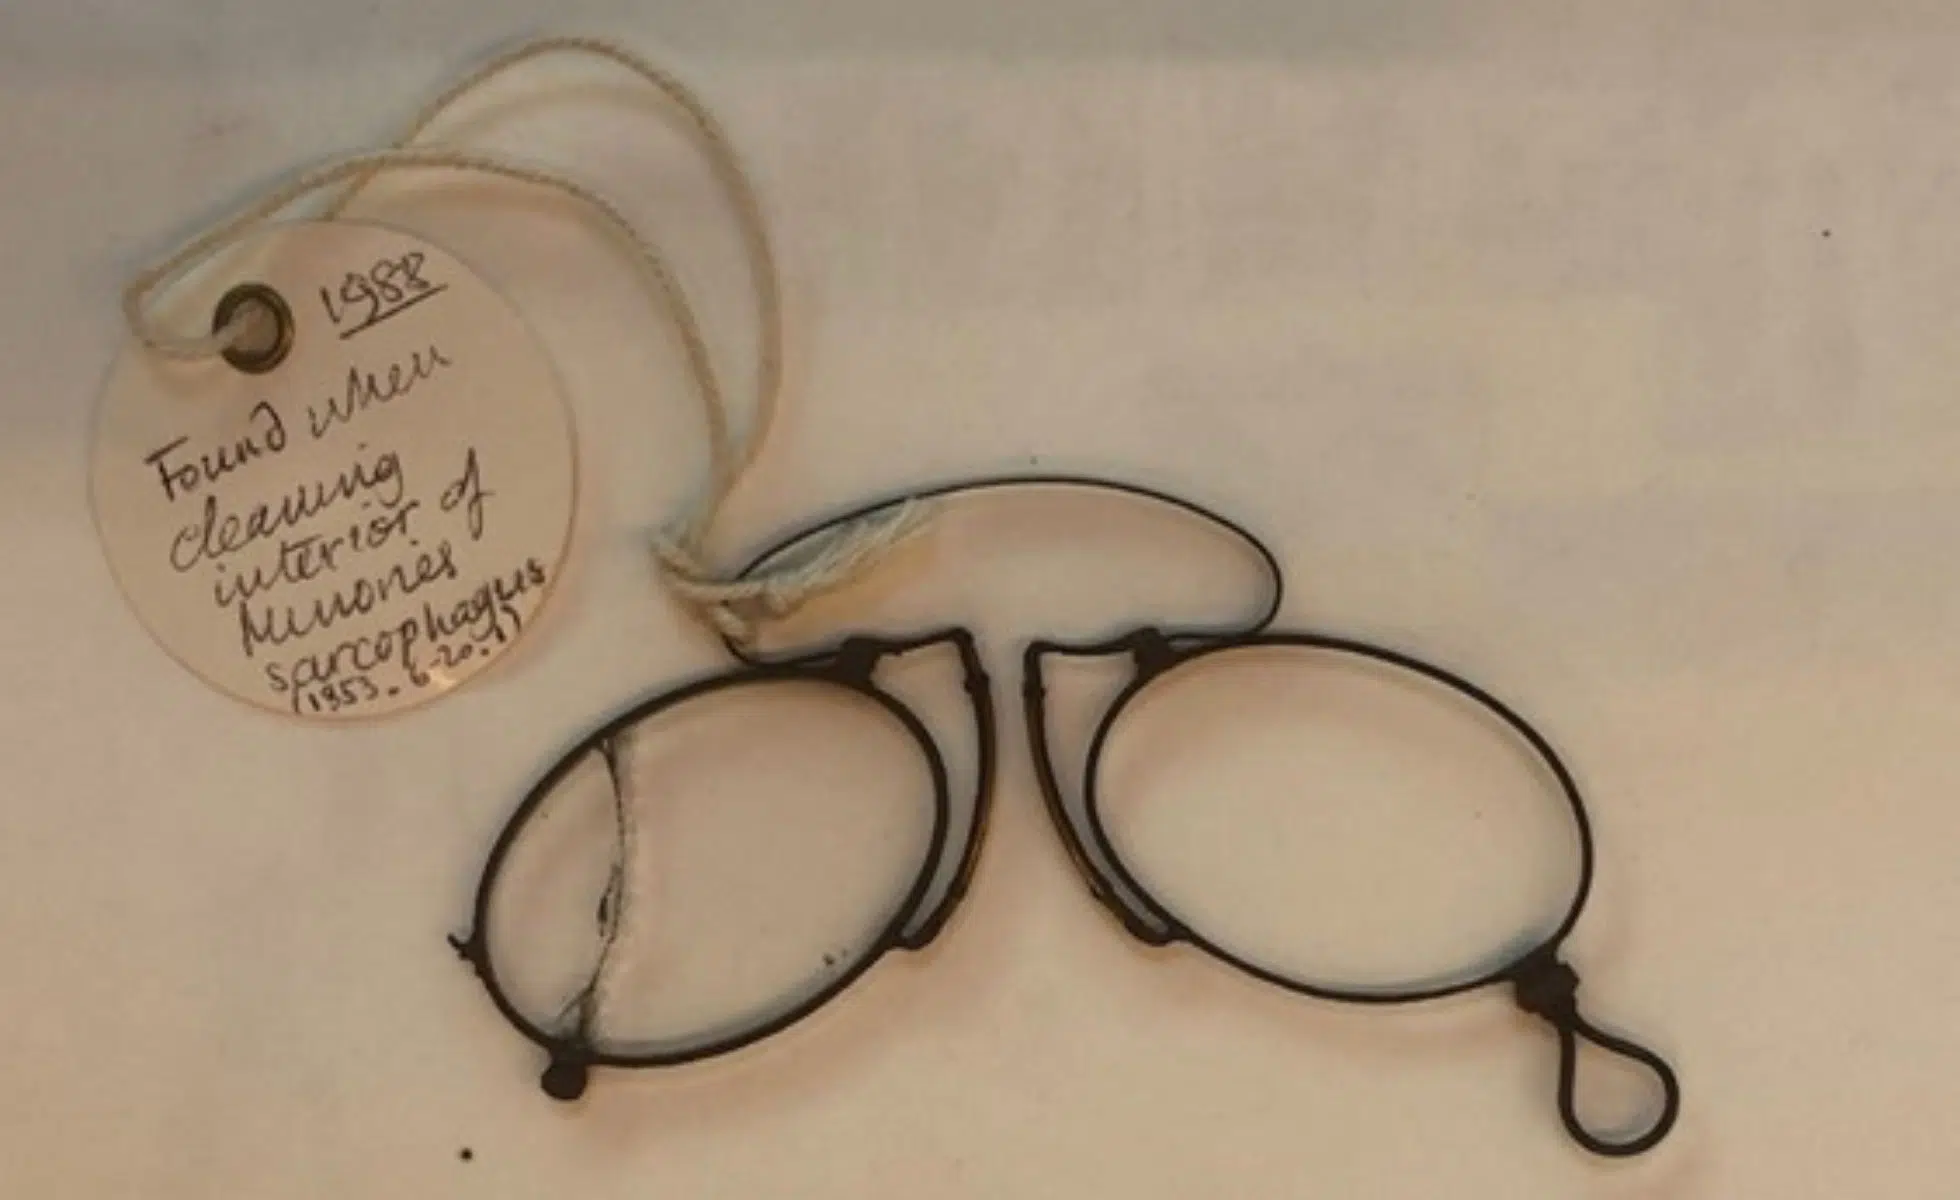 1988
Found when
cleaning
interior of
Minories
sarcophagus
(1853.6-20.1)